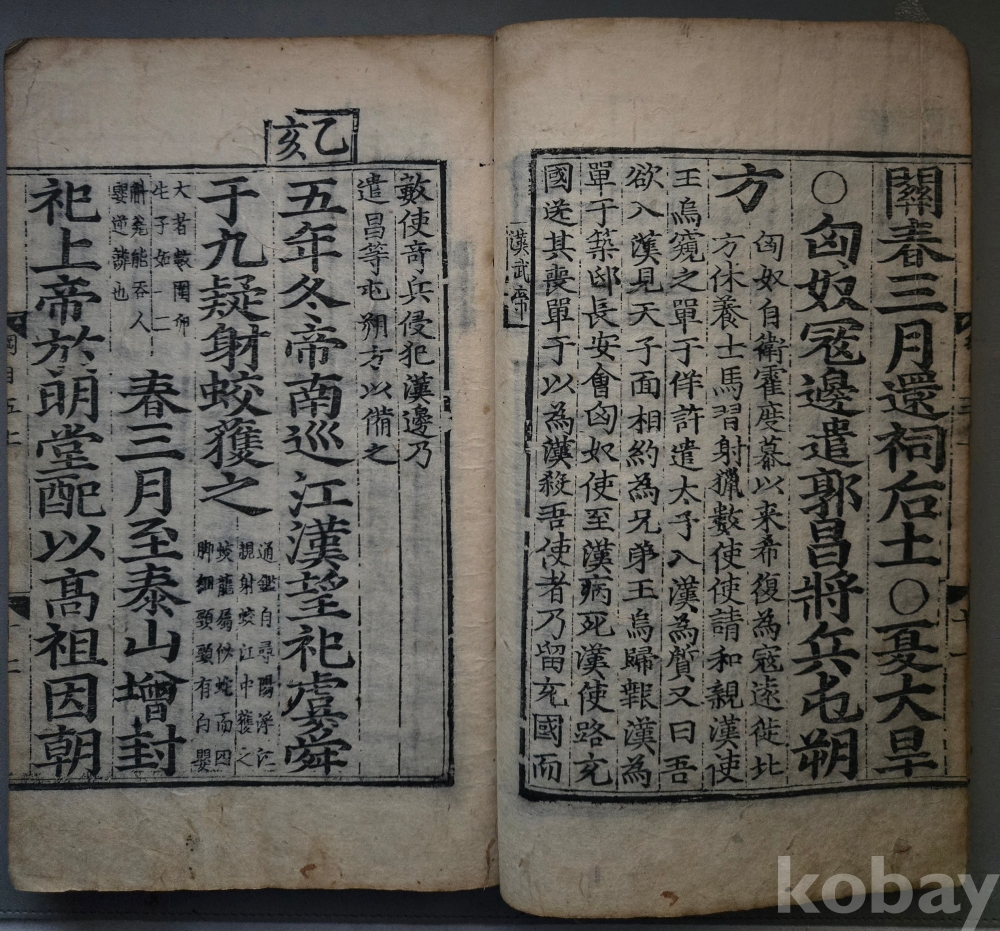 關春三月還祠后土○夏大旱
○匈奴寇邊遣郭昌將兵屯朔
方
匈奴自衛霍度幕以来希復為寇逺徙北
方休養士馬習射獵數使使請和親漢使
王烏窺之單于佯許遣太子入漢為質又曰吾
欲入漢見天子面相約為兄弟王烏歸報漢為
單于築邸長安會匈奴使至漢病死漢使路充
國送其喪單于以為漢殺吾使者乃留充國而
漢武帝
數使奇兵侵犯漢邊乃
遣昌等屯朔方以備之
乙亥
五年冬帝南巡江漢望祀虞舜
于九疑射蛟獲之
通鑑自尋陽浮江
親射蛟江中獲之
蛟龍屬似蛇而四
脚細頸頸有白嬰
大者數圍卵
生子如一二
斛瓮能吞人
嬰逆諱也
春三月至泰山增封
祀上帝於明堂配以高祖因朝
kobay